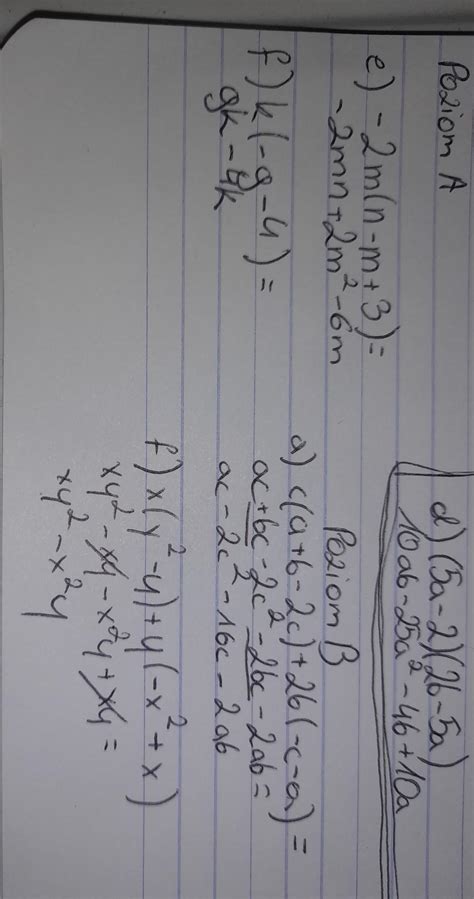 Poziom A
e) -2m(n-m+3)=
-2mn+2m²-6m
f) k(-g-4)=
gk-4k
d) (5a-2)(2b-5a)
10ab-25a²-4b+10a
Poziom B
a) c(a+b-2c)+2b(-c-a)=
ac+bc-2c²-2bc-2ab=
ac-2c²-1bc-2ab
f) x(y²-y)+y(-x²+x)
xy²-xy-x²y+xy=
xy²-x²y